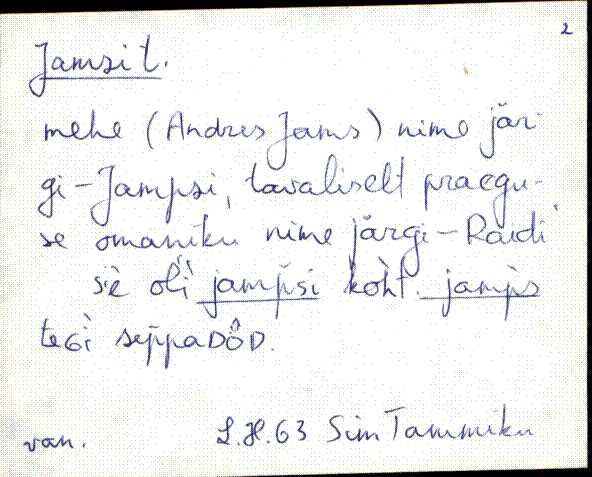 2
Jamsi t.
mehe (Andres Jams) nime jär-
gi - Jampsi, tavaliselt praegu-
se omaniku nime järgi - Raidi
si̬è oĺì jamp̀si kòht. jamp̀s
teGì sep̀paDôD.
van. L.H. 63 Sim Tammiku